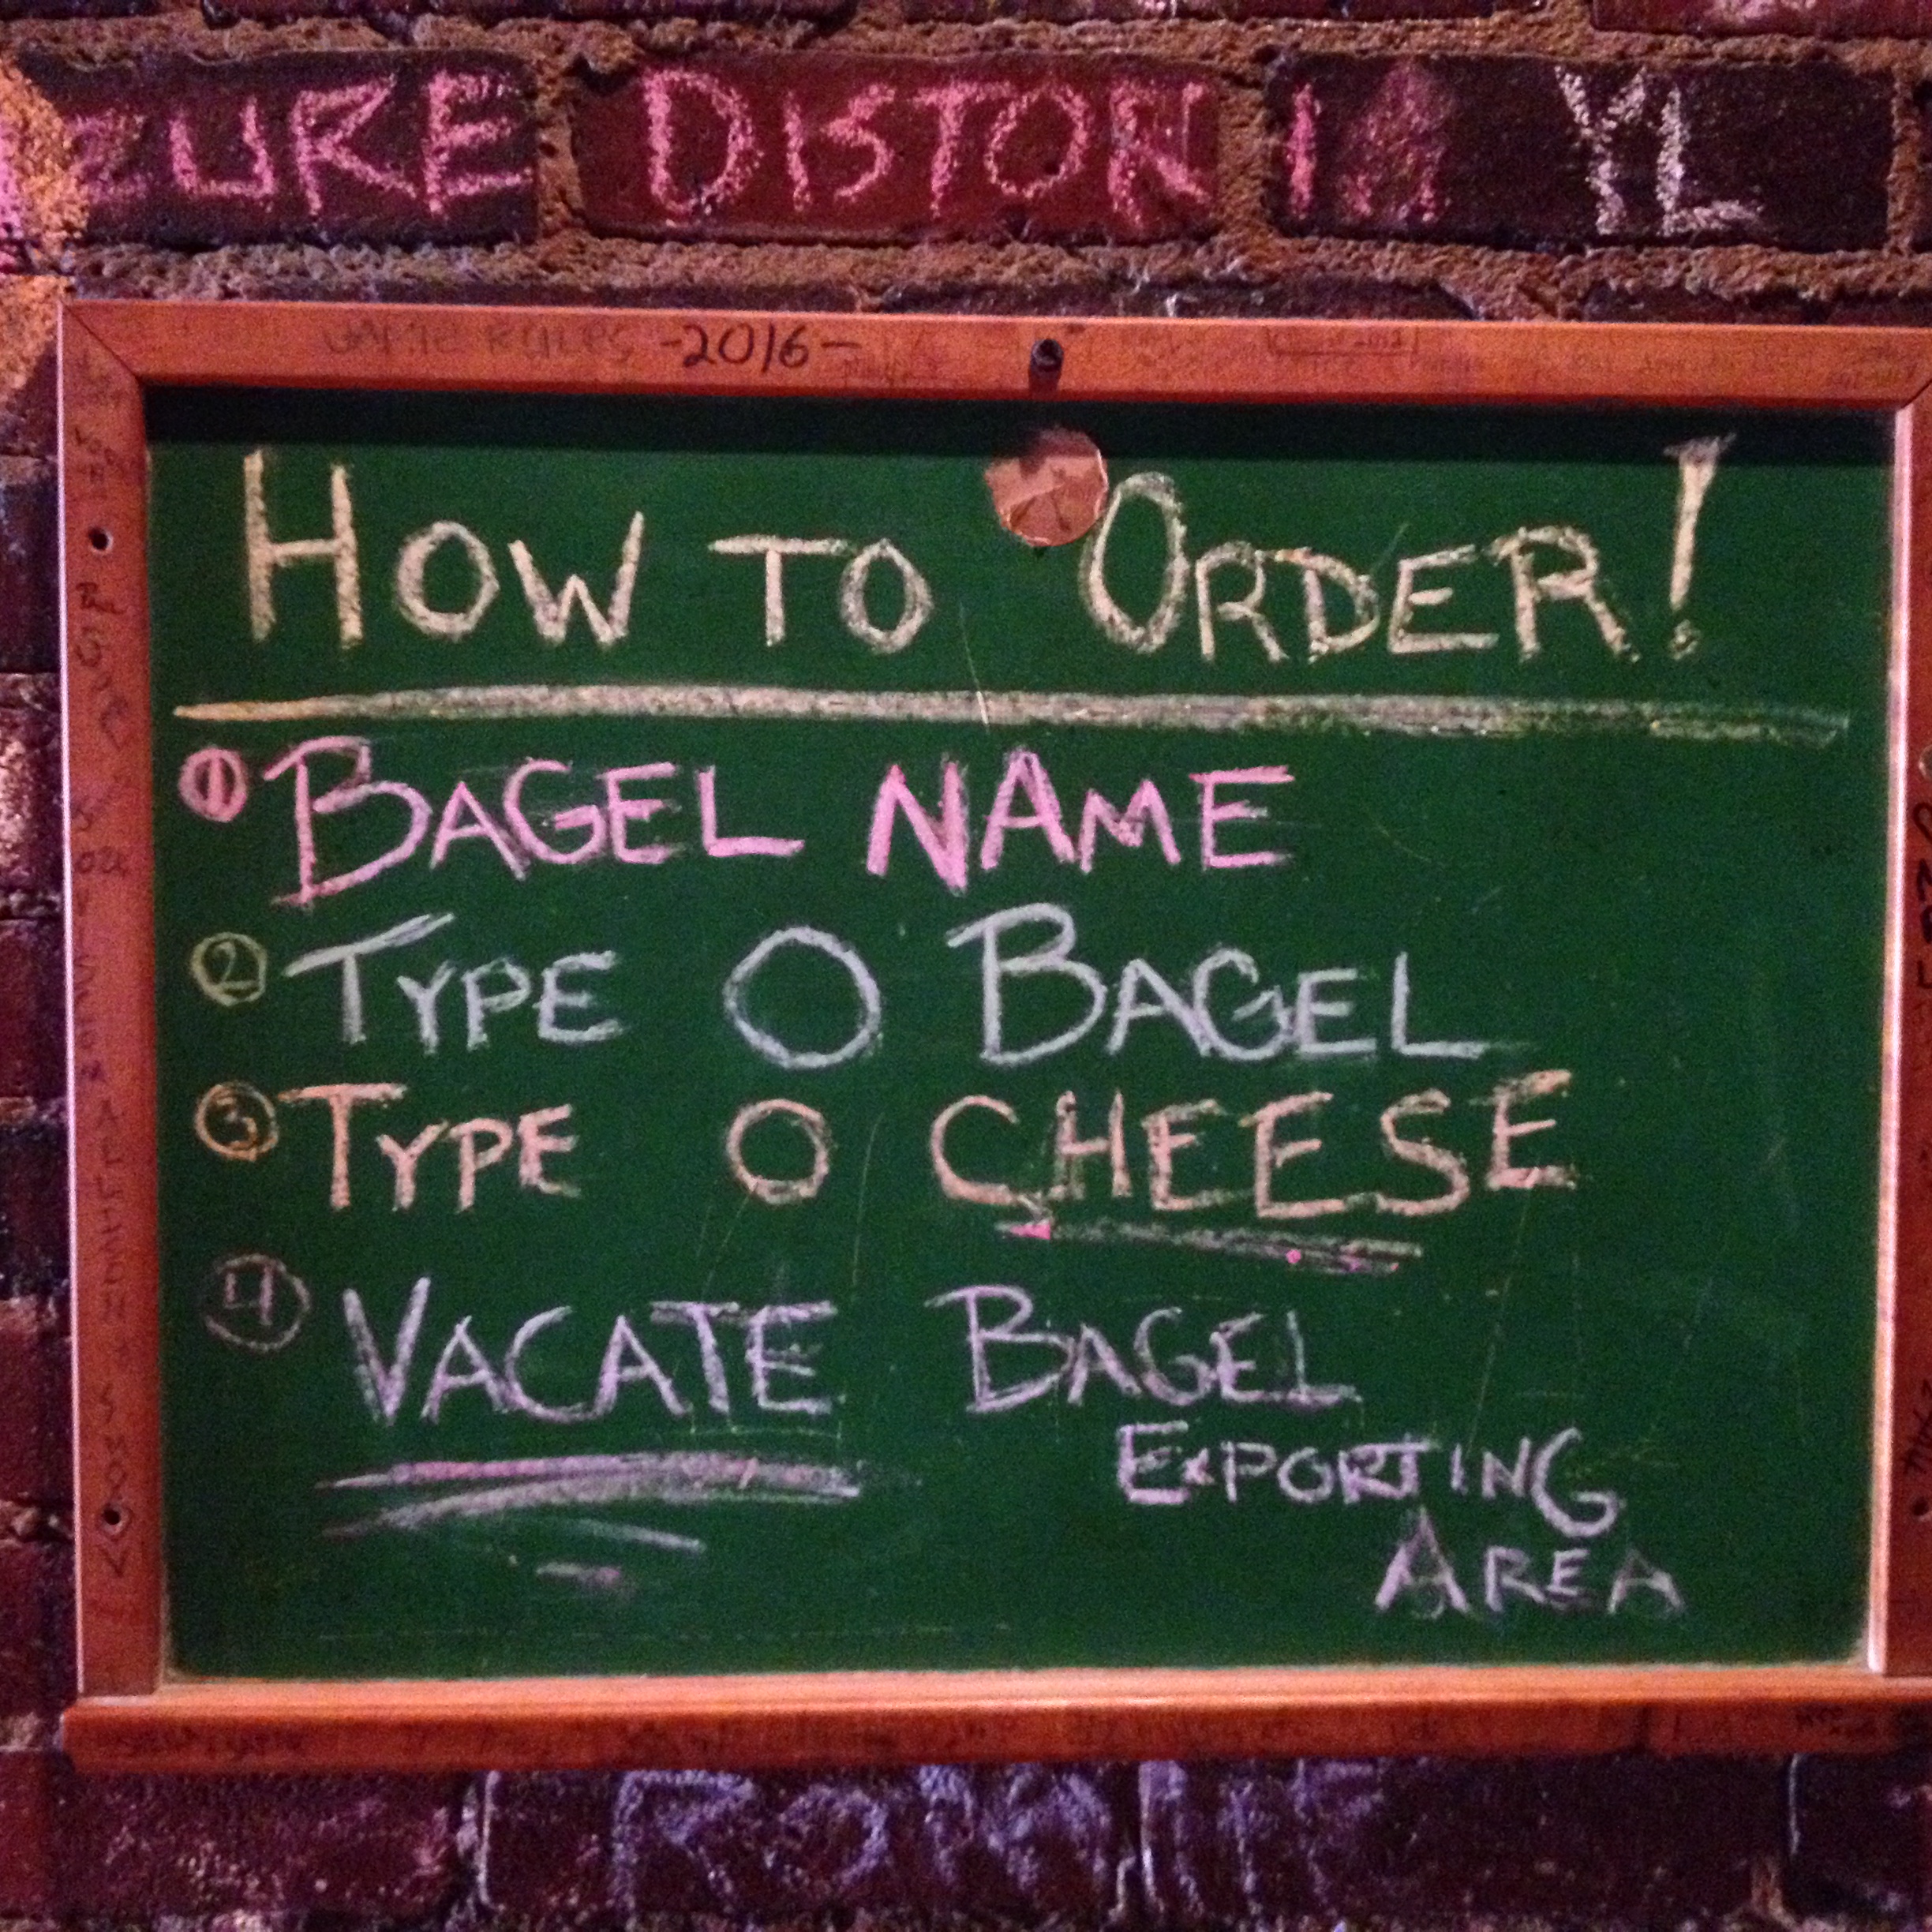 ZURE DISTON YL
-2016-
HOW TO ORDER!
① BAGEL NAME
② TYPE O BAGEL
③ TYPE O CHEESE
④ VACATE BAGEL
EXPORTING
AREA